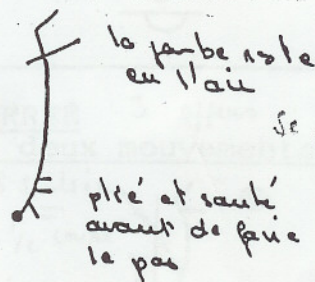 la jambe reste
en l'air
plié et sauté
avant de faire
le pas